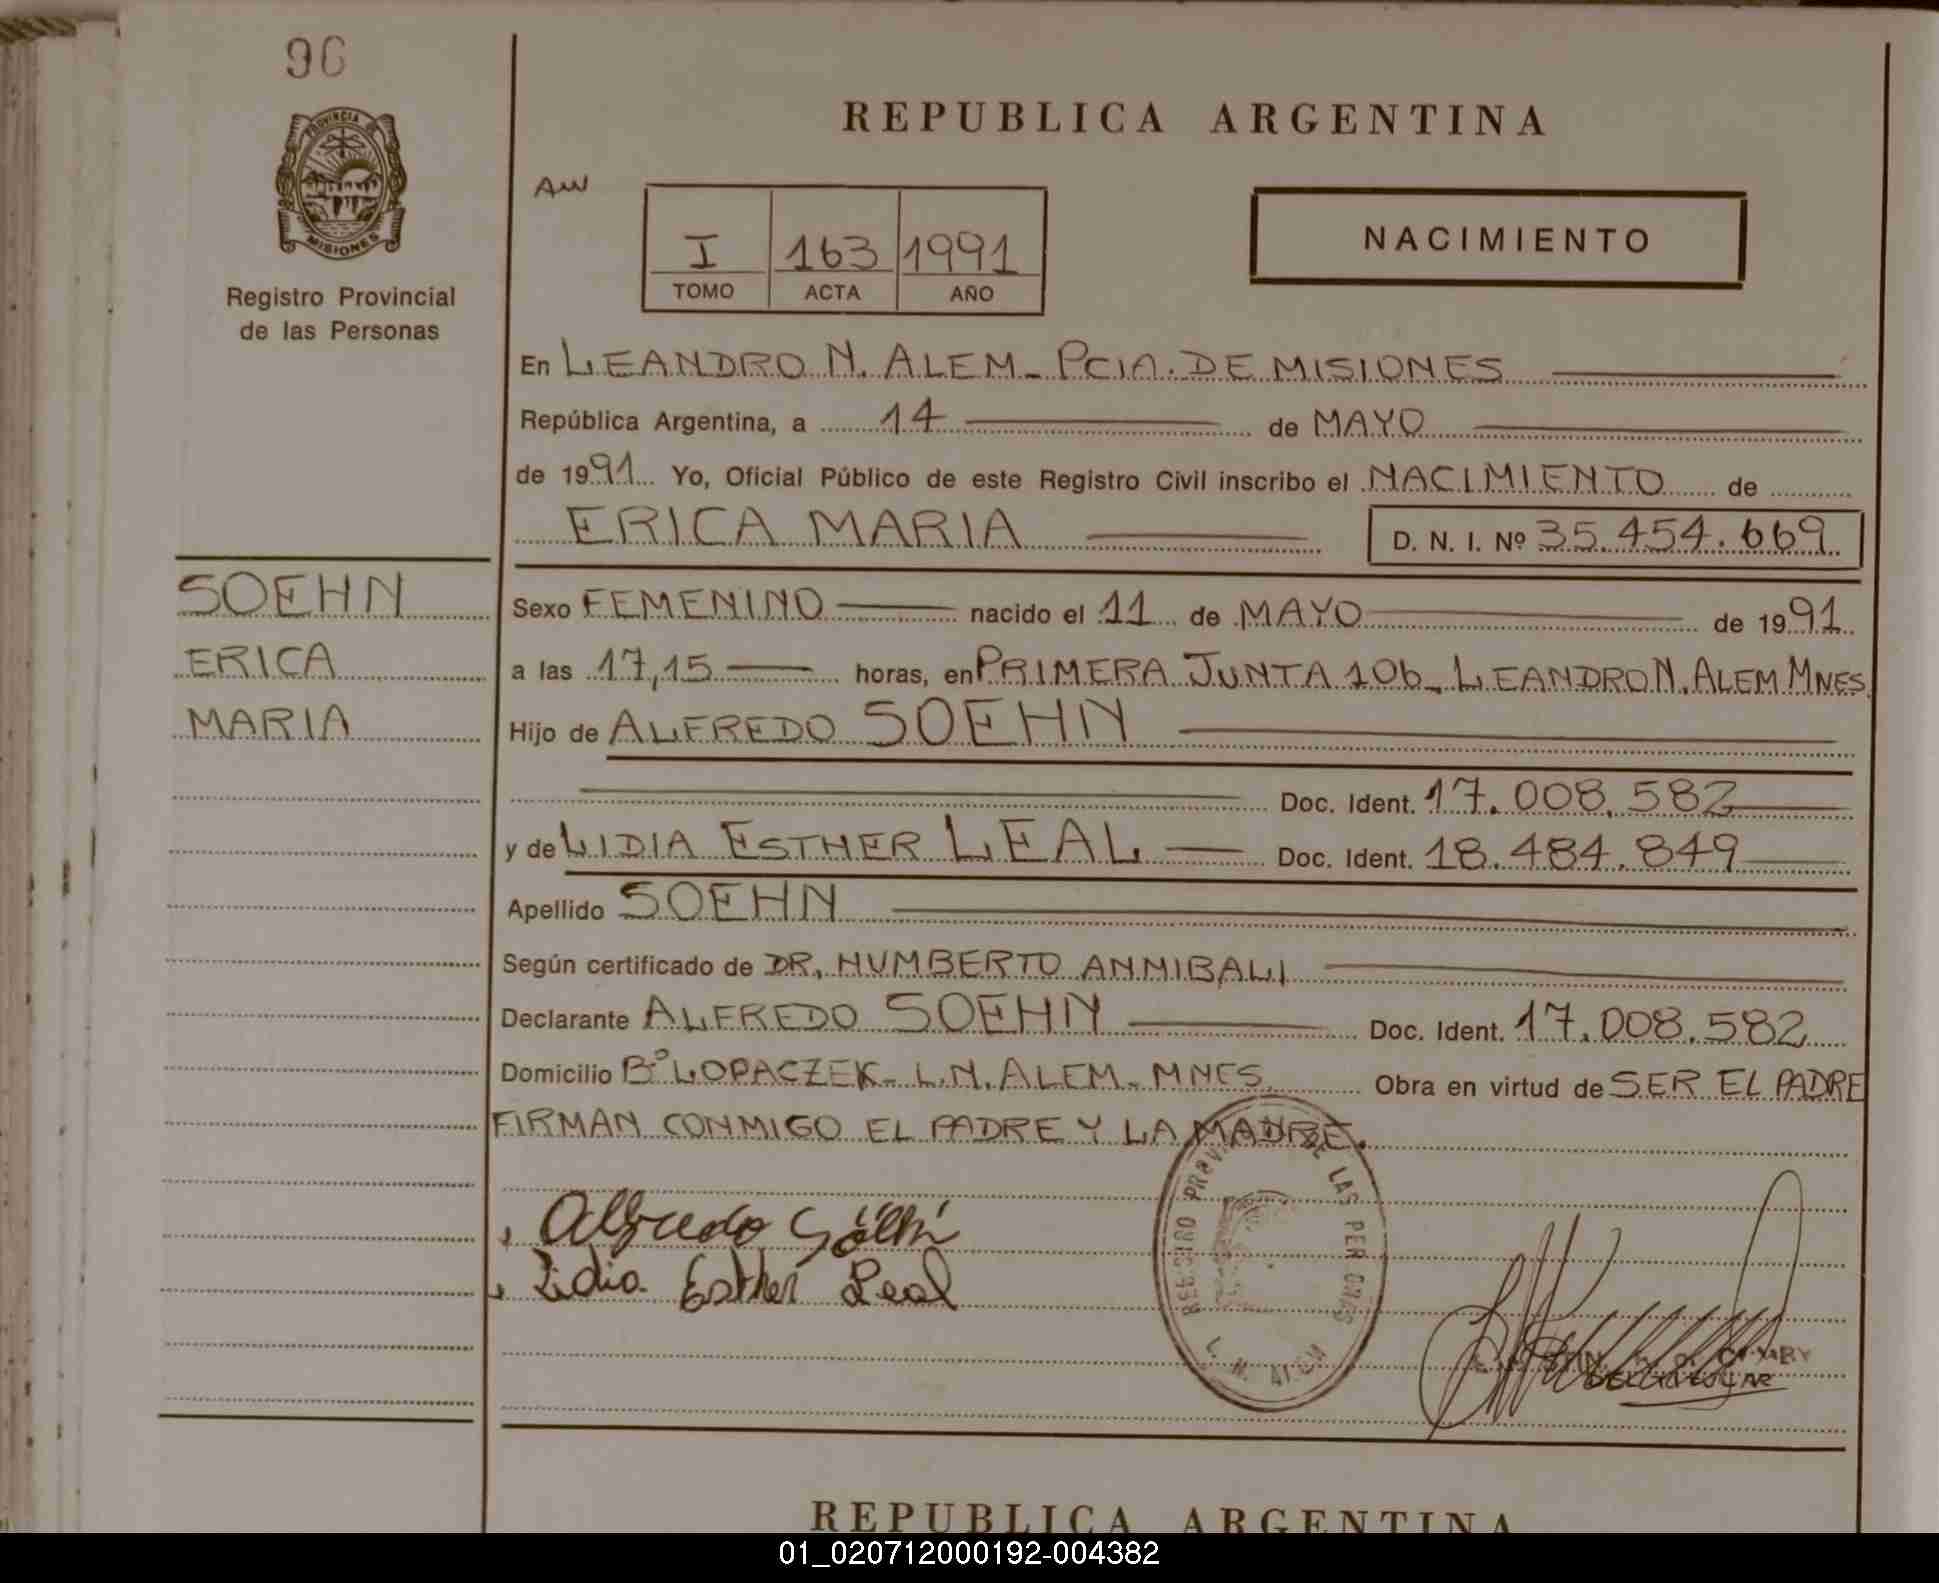 96
PROVINCIA DE
MISIONES
Registro Provincial
de las Personas
REPUBLICA ARGENTINA
AW
I 163 1991
TOMO ACTA AÑO
NACIMIENTO
En LEANDRO N. ALEM - PCIA. DE MISIONES
República Argentina, a 14 de MAYO
de 1991 Yo, Oficial Público de este Registro Civil inscribo el NACIMIENTO de
ERICA MARIA D. N. I. Nº 35.454.669
SOEHN
ERICA
MARIA
Sexo FEMENINO nacido el 11 de MAYO de 1991
a las 17,15 horas, en PRIMERA JUNTA 106 - LEANDRO N. ALEM MNES.
Hijo de ALFREDO SOEHN
Doc. Ident. 17.008.582
y de LIDIA ESTHER LEAL Doc. Ident. 18.484.849
Apellido SOEHN
Según certificado de DR. HUMBERTO ANNIBALI
Declarante ALFREDO SOEHN Doc. Ident. 17.008.582
Domicilio Bº LOPACZEK - L.N. ALEM - MNES. Obra en virtud de SER EL PADRE
FIRMAN CONMIGO EL PADRE Y LA MADRE.
Alfredo Söhn
Lidia Esther Leal
REGISTRO PROV. DE LAS PERSONAS
L. N. ALEM
REPUBLICA ARGENTINA
01_020712000192-004382